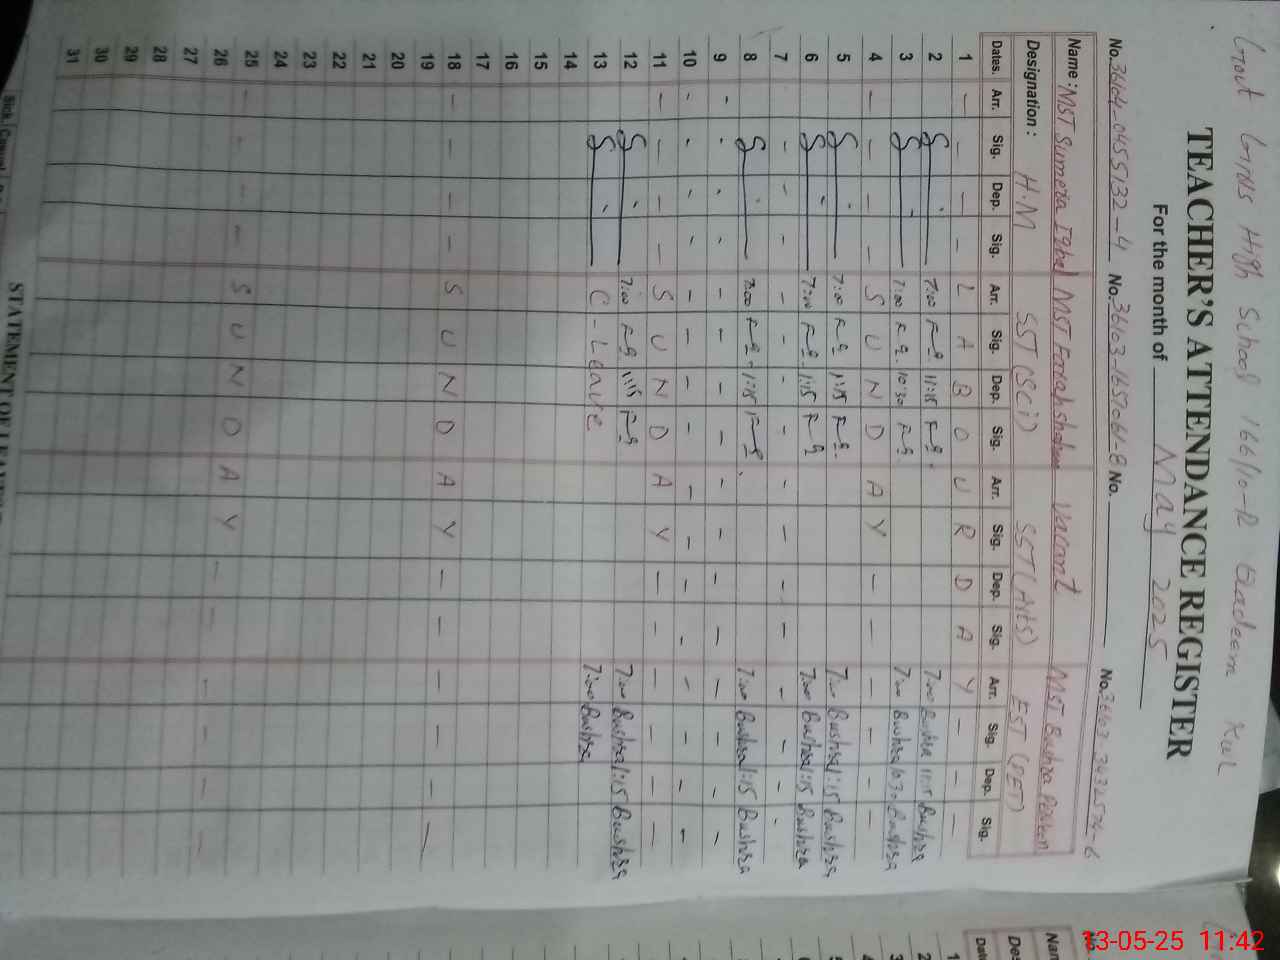 Govt Girls High School 166/10-R Khadeem KWL
TEACHER'S ATTENDANCE REGISTER
For the month of May 2025
No. 36104-0455132-4 No. 36103-1657061-8 No. No. 36103-3432574-6
Name: MST Sumera Iqbal MST Farah shaheen Vacant MST Bushra Perveen
Designation: H.M SST (Sci) SST (Arts) EST (PET)
Dates. Arr. Sig. Dep. Sig. Arr. Sig. Dep. Sig. Arr. Sig. Dep. Sig. Arr. Sig. Dep. Sig.
1 - - - - L A B O U R D A Y - - -
2 7:00 11:15 7:00 Bushra 11:15 Bushra
3 7:00 10:30 7:00 Bushra 10:30 Bushra
4 - - - - S U N D A Y - - - - - -
5 7:00 1:15 7:00 Bushra 1:15 Bushra
6 7:00 1:15 7:00 Bushra 1:15 Bushra
7 - - - - - - - - - - - - - -
8 7:00 1:15 7:00 Bushra 1:15 Bushra
9 - - - - - - - - - - - - - - -
10 - - - - - - - - - - - - - - - -
11 - - - - S U N D A Y - - - - - -
12 7:00 1:15 7:00 Bushra 1:15 Bushra
13 C-Leave 7:00 Bushra
14
15
16
17
18 - - - - S U N D A Y - - - - - -
19
20
21
22
23
24
25 - - - - S U N D A Y - - - - - -
26
27
28
29
30
31
STATEMENT OF LEAVE
Sick Casual
13-05-25 11:42